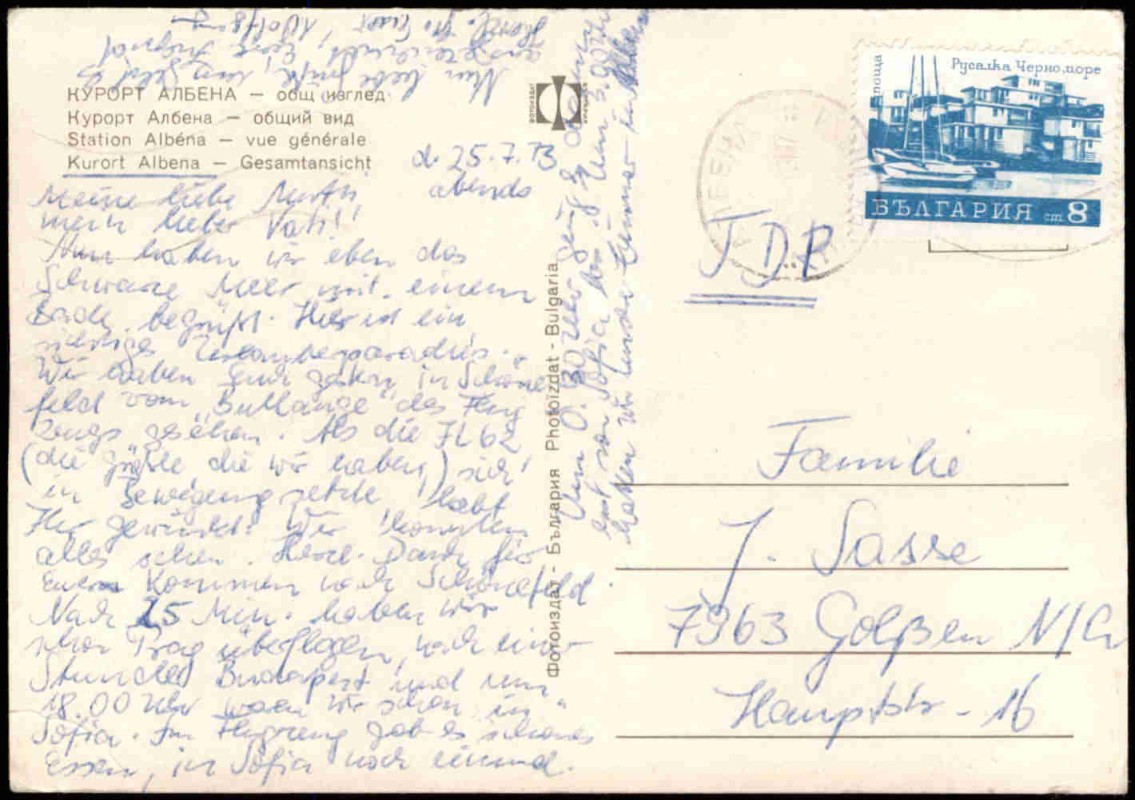 КУРОРТ АЛБЕНА — общ изглед
Курорт Албена — общий вид
Station Albéna — vue générale
Kurort Albena — Gesamtansicht
d. 25.7.73
abends
Meine liebe Mutti
mein lieber Vati!
Nun haben wir eben das
Schwarze Meer mit einem
Bade begrüßt. Hier ist ein
Urlaubsparadies.
Wir haben Euch gestern in Schöne
feld vom "Bullauge" des Flug
zeugs gesehen. Als die IL 62
(die größte die wir haben) sich
in Bewegung setzte habt
Ihr gewinkt. Wir konnten
alles sehen. Herzl. Dank für
Euer Kommen nach Schönefeld.
Nach 25 Min. haben wir
schon Prag überflogen, nach einer
Stunde Budapest und um
18.00 Uhr waren wir schon in
Sofia. Im Flugzeug gab es schönes
Essen, in Sofia noch einmal.
Um 0.30 Uhr ging es
erst von Sofia los. Um 3.00 Uhr
hatten wir unser Zimmer in Albena
Nun liebe Mutti, lieber
ausgezeichnet, Eure Sigrid
Wolfgang
Фотоиздат - България Photoizdat - Bulgaria
поща
Русалка Черно море
БЪЛГАРИЯ ст 8
АЛБЕНА
DDR
Familie
J. Sasse
7963 Golßen N/L
Hauptstr. 16